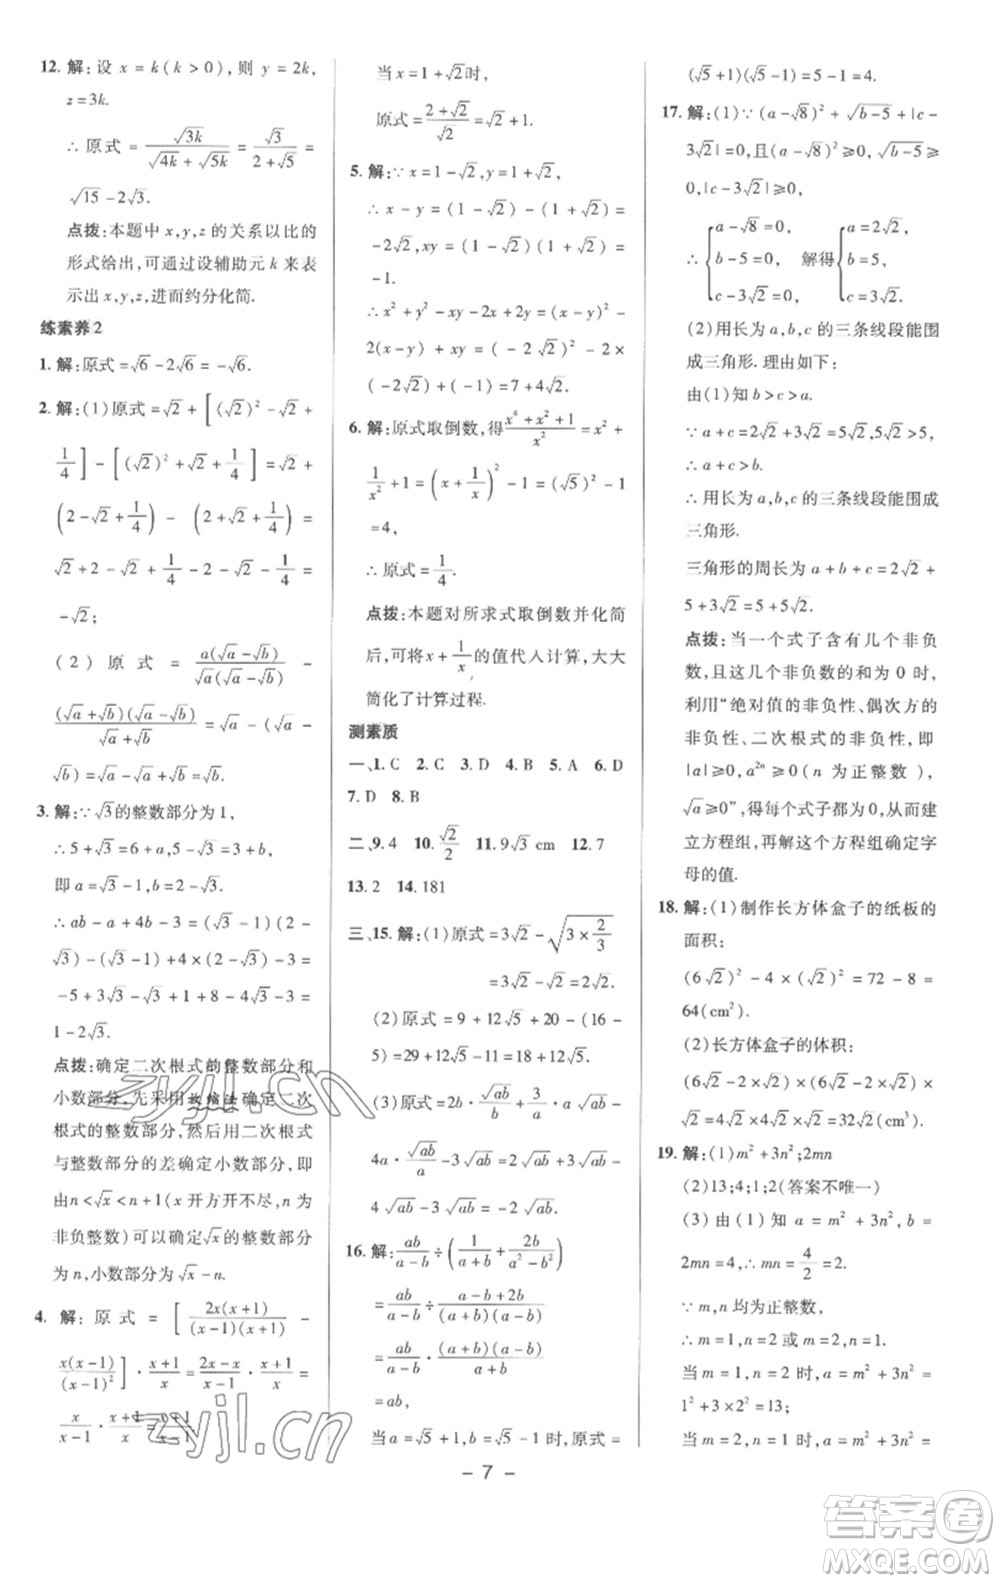 12. 解:设 x = k(k > 0),则 y = 2k,
z = 3k.
∴ 原式 = √3k/(√4k + √5k) = √3/(2 + √5) =
√15 - 2√3.
点拨:本题中 x,y,z 的关系以比的
形式给出,可通过设辅助元 k 来表
示出 x,y,z,进而约分化简.
练素养 2
1. 解:原式 = √6 - 2√6 = -√6.
2. 解:(1)原式 = √2 + [(√2)² - √2 +
1/4] - [(√2)² + √2 + 1/4] = √2 +
(2 - √2 + 1/4) - (2 + √2 + 1/4) =
√2 + 2 - √2 + 1/4 - 2 - √2 - 1/4 =
-√2;
(2) 原式 = a(√a - √b)/(√a(√a - √b)) -
(√a + √b)(√a - √b)/(√a + √b) = √a - (√a -
√b) = √b.
3. 解:∵ √3的整数部分为 1,
∴ 5 + √3 = 6 + a,5 - √3 = 3 + b,
即 a = √3 - 1,b = 2 - √3.
∴ ab - a + 4b - 3 = (√3 - 1)(2 -
√3) - (√3 - 1) + 4×(2 - √3) - 3 =
-5 + 3√3 - √3 + 1 + 8 - 4√3 - 3 =
1 - 2√3.
点拨:确定二次根式的整数部分和
小数部分,先采用放缩法确定二次
根式的整数部分,然后用二次根式
与整数部分的差确定小数部分,即
由 n < √x < n + 1(x 开方开不尽,n 为
非负整数)可以得出 √x 的整数部分
为 n,小数部分为 √x - n.
4. 解:原式 = [2x(x + 1)/((x - 1)(x + 1)) -
x(x - 1)/(x - 1)²] · (x + 1)/x = (2x - x)/(x - 1) · (x + 1)/x =
x/(x - 1) · (x + 1)/x = (x + 1)/(x - 1).
当 x = 1 + √2时,
原式 = (2 + √2)/√2 = √2 + 1.
5. 解:∵ x = 1 - √2,y = 1 + √2,
∴ x - y = (1 - √2) - (1 + √2) =
-2√2,xy = (1 - √2)(1 + √2) =
-1.
∴ x² + y² - xy - 2x + 2y = (x - y)² -
2(x - y) + xy = (-2√2)² - 2×
(-2√2) + (-1) = 7 + 4√2.
6. 解:原式取倒数,得(x⁴ + x² + 1)/x² = x² +
1/x² + 1 = (x + 1/x)² - 1 = (√5)² - 1
= 4,
∴ 原式 = 1/4.
点拨:本题对所求式取倒数并化简
后,可将 x + 1/x 的值代入计算,大大
简化了计算过程.
测素质
一、1. C 2. C 3. D 4. B 5. A 6. D
7. D 8. B
二、9. 4 10. √2/2 11. 9√3 cm 12. 7
13. 2 14. 181
三、15. 解:(1)原式 = 3√2 - √(3×2/3)
= 3√2 - √2 = 2√2.
(2)原式 = 9 + 12√5 + 20 - (16 -
5) = 29 + 12√5 - 11 = 18 + 12√5.
(3)原式 = 2b · √ab/b + 3/a · a√ab -
4a · √ab/a - 3√ab = 2√ab + 3√ab -
4√ab - 3√ab = -2√ab.
16. 解:ab/(a - b) ÷ (1/(a + b) + 2b/(a² - b²))
= ab/(a - b) ÷ (a - b + 2b)/((a + b)(a - b))
= ab/(a - b) · (a + b)(a - b)/(a + b)
= ab,
当 a = √5 + 1,b = √5 - 1时,原式 =
(√5 + 1)(√5 - 1) = 5 - 1 = 4.
17. 解:(1)∵ (a - √8)² + √(b - 5) + |c -
3√2| = 0,且(a - √8)² ≥0, √(b - 5) ≥
0,|c - 3√2| ≥0,
∴ {a - √8 = 0, b - 5 = 0, c - 3√2 = 0, 解得 {a = 2√2, b = 5, c = 3√2.
(2)用长为 a,b,c 的三条线段能围
成三角形. 理由如下:
由(1)知 b > c > a.
∵ a + c = 2√2 + 3√2 = 5√2,5√2 > 5,
∴ a + c > b.
∴ 用长为 a,b,c 的三条线段能围成
三角形.
三角形的周长为 a + b + c = 2√2 +
5 + 3√2 = 5√2 + 5.
点拨:当一个式子含有几个非负
数,且这几个非负数的和为 0 时,
利用“绝对值的非负性、偶次方的
非负性、二次根式的非负性,即
|a|≥0,a²ⁿ≥0(n 为正整数),
√a≥0”,得每个式子都为 0,从而建
立方程组,再解这个方程组确定字
母的值.
18. 解:(1)制作长方体盒子的纸板的
面积:
(6√2)² - 4×(√2)² = 72 - 8 =
64(cm²).
(2)长方体盒子的体积:
(6√2 - 2√2)×(6√2 - 2√2)×
√2 = 4√2×4√2×√2 = 32√2(cm³).
19. 解:(1)m² + 3n²;2mn
(2)13;4;1;2(答案不唯一)
(3)由(1)知 a = m² + 3n²,b =
2mn = 4,∴ mn = 4/2 = 2.
∵ m,n 均为正整数,
∴ m = 1,n = 2或 m = 2,n = 1.
当 m = 1,n = 2时,a = m² + 3n² =
1² + 3×2² = 13;
当 m = 2,n = 1时,a = m² + 3n² =
- 7 -
zyjl.cn
zyjl.cn
答案圈
MXQE.COM